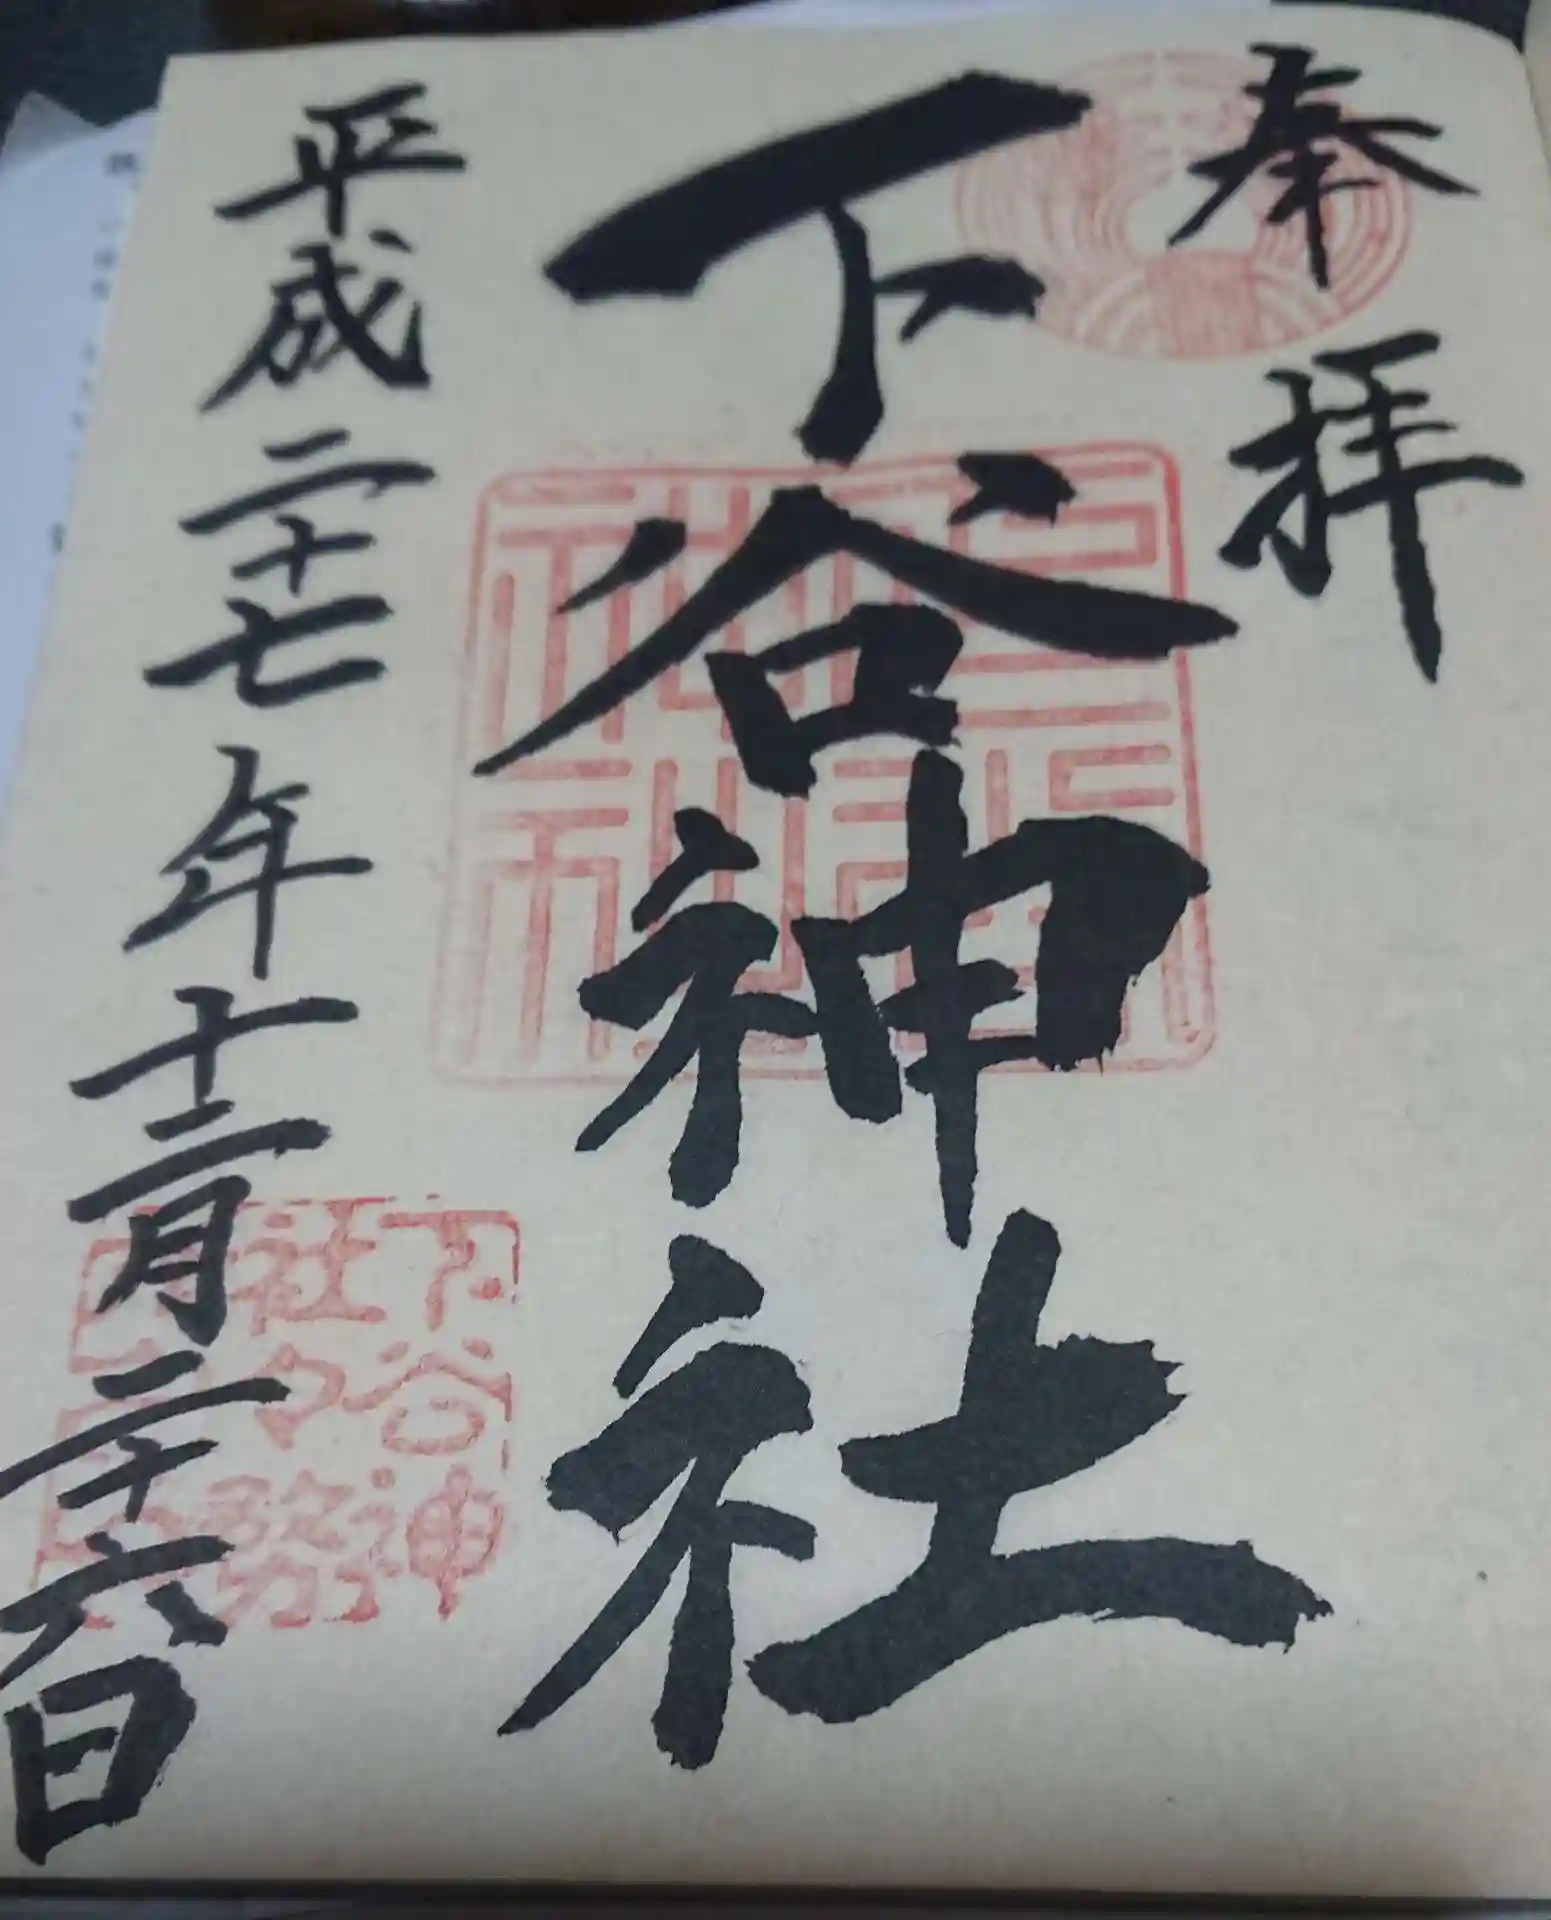 奉拝
下谷神社
平成二十七年十二月二十六日
下谷神
社々務